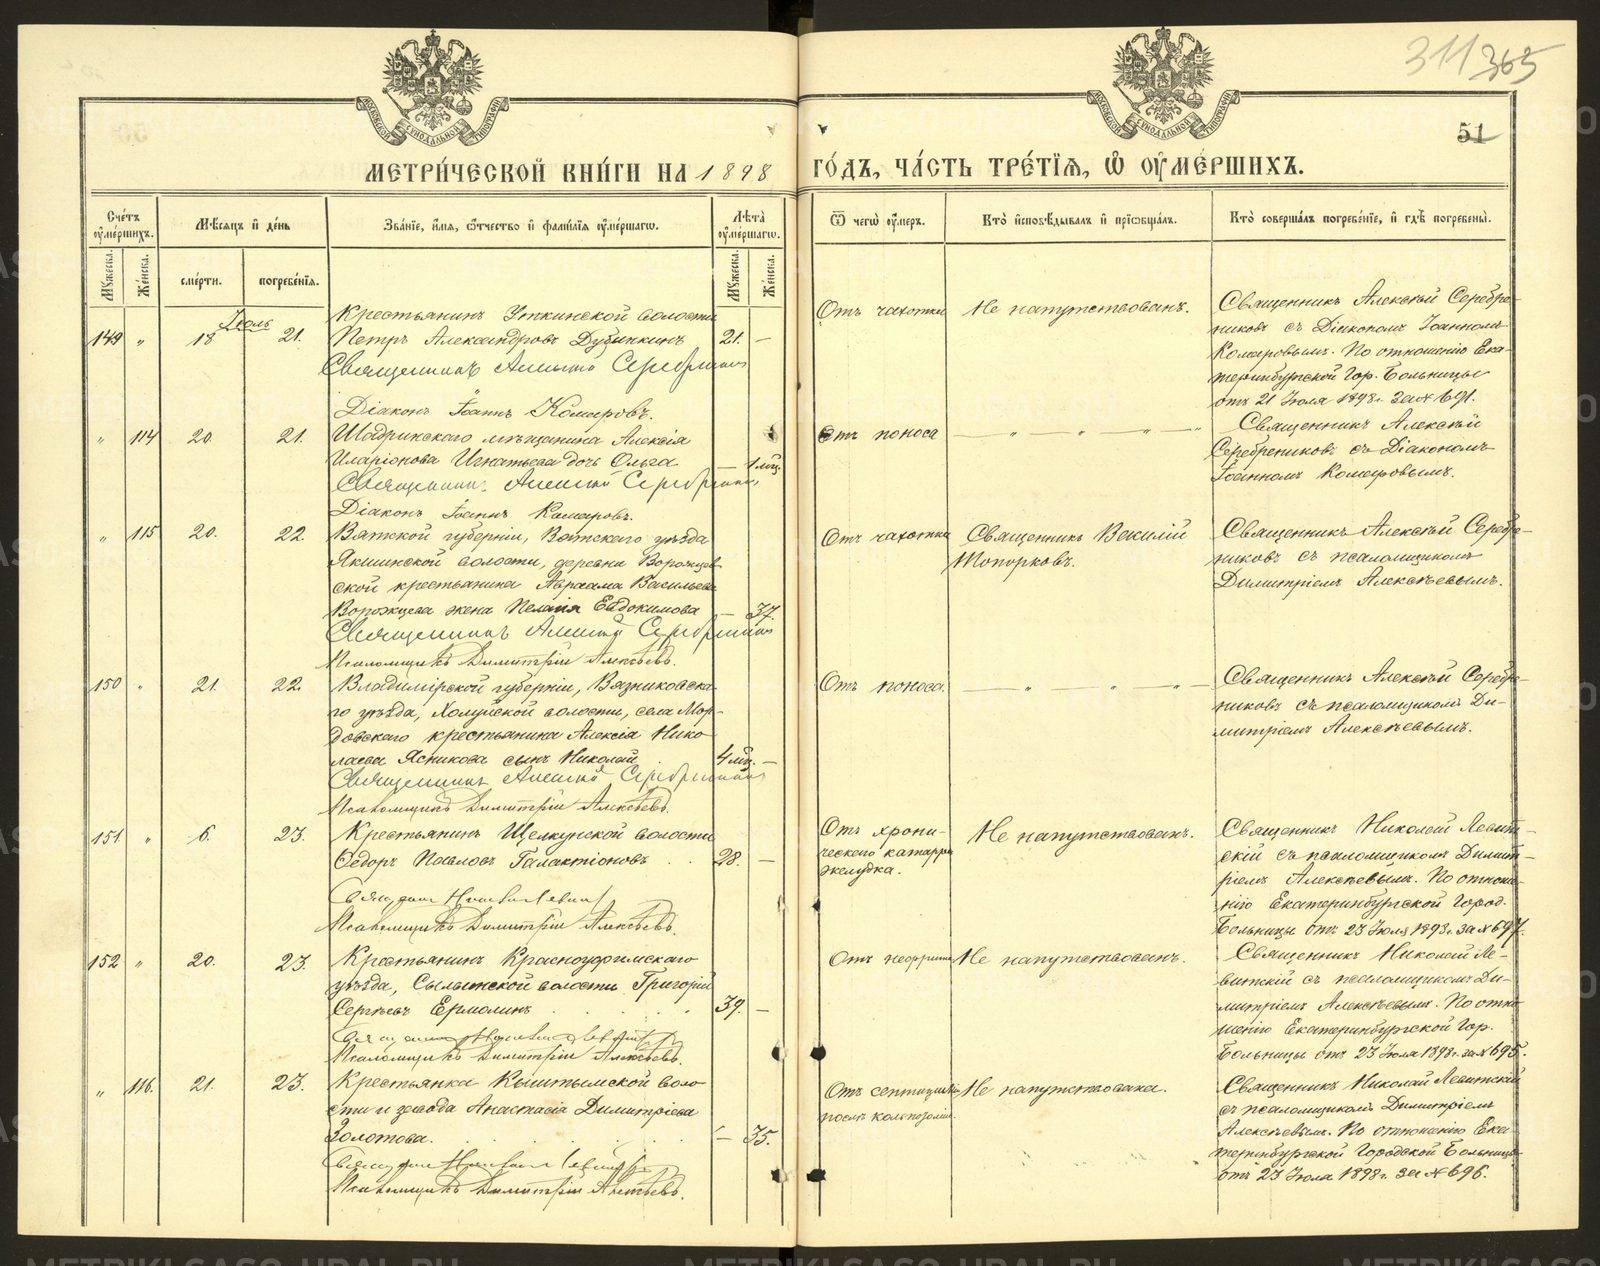 311 365
51
МЕТРИ́ЧЕСКОЙ КНИ́ГИ НА 1898 ГО́ДЪ, ЧА́СТЬ ТРЕ́ТІѦ, Ѡ҆ ОУ҆МЕ́РШИХЪ.
Сче́тъ оу҆ме́ршихъ.
Мѣ́сяцъ и҆ де́нь
Зва́нїе, и҆́мѧ, ѻ҆́тчество и҆ фами́лїѧ оу҆ме́ршагѡ.
Лѣ́та оу҆ме́ршагѡ.
Ѿ чегѡ̀ оу҆́меръ.
Кто̀ и҆сповѣ́дывалъ и҆ прїѡбща́лъ.
Кто̀ соверша́лъ погребе́нїе, и҆ гдѣ̀ погребены̀.
Мꙋ́жеска.
Же́нска.
сме́рти.
погребе́нїѧ.
Мꙋ́жеска.
Же́нска.
Іюль
149 " 18 21.
Крестьянинъ Уткинской волости
Петръ Александровъ Дубинкинъ 21. —
Священникъ Алексій Серебрениковъ
Діаконъ Іоаннъ Комаровъ.
Отъ чахотки
Не напутствованъ.
Священникъ Алексѣй Серебре-
никовъ съ Діакономъ Іоанномъ
Комаровымъ. По отношенію Ека-
теринбургской Гор. Больницы
отъ 21 Іюля 1898 г. за № 691.
" 114 20. 21.
Шадринскаго мѣщанина Алексія
Иларіонова Игнатьева дочь Ольга — 1 мц.
Священникъ Алексій Серебрениковъ
Діаконъ Іоаннъ Комаровъ.
Отъ поноса
— " — " — " — "
Священникъ Алексѣй
Серебрениковъ съ Діакономъ
Іоанномъ Комаровымъ.
" 115 20. 22.
Вятской губерніи, Вотскаго уѣзда
волости, деревни Ворожцов-
ской крестьянина Авраама Васильева
Ворожцова жена Пелагія Евдокимова — 37.
Священникъ Алексій Серебрениковъ
Псаломщикъ Димитрій Алексѣевъ.
Отъ чахотки
Священникъ Василій
Топорковъ.
Священникъ Алексѣй Серебре-
никовъ съ псаломщикомъ
Димитріемъ Алексѣевымъ.
150 " 21. 22.
Владимірской губерніи, Вязниковска-
го уѣзда, Холуйской волости, села Мор-
довскаго крестьянина Алексія Нико-
лаева Ясникова сынъ Николай 4 мц. —
Священникъ Алексій Серебрениковъ
Псаломщикъ Димитрій Алексѣевъ.
Отъ поноса.
— " — " — " —
Священникъ Алексѣй Серебре-
никовъ съ псаломщикомъ Ди-
митріемъ Алексѣевымъ.
151. " 6. 23.
Крестьянинъ Щелкунской волости
Ѳедоръ Павловъ Галактіоновъ . . 28. —
Священникъ Николай Левитскій
Псаломщикъ Димитрій Алексѣевъ.
Отъ хрони-
ческаго катарра
желудка.
Не напутствованъ.
Священникъ Николай Левит-
скій съ псаломщикомъ Димит-
ріемъ Алексѣевымъ. По отноше-
нію Екатеринбургской Город.
Больницы отъ 23 Іюля 1898 г. за № 697.
152 " 20. 23.
Крестьянинъ Красноуфимскаго
уѣзда, Сылвинской волости Григорій
Сергѣевъ Ермолинъ . . . . 39. —
Священникъ Николай Левитскій
Псаломщикъ Димитрій Алексѣевъ.
Отъ
Не напутствованъ.
Священникъ Николай Ле-
витскій съ псаломщикомъ Ди-
митріемъ Алексѣевымъ. По отно-
шенію Екатеринбургской Гор.
Больницы отъ 23 Іюля 1898 г. за № 695.
" 116. 21. 23.
Крестьянка Кыштымской воло-
сти и завода Анастасія Димитріева
Золотова. . . . . . — 35.
Священникъ Николай Левитскій
Псаломщикъ Димитрій Алексѣевъ.
Отъ
Не напутствована.
Священникъ Николай Левитскій
съ псаломщикомъ Димитріемъ
Алексѣевымъ. По отношенію Ека-
теринбургской Городской Больницы
отъ 23 Іюля 1898 г. за № 696.